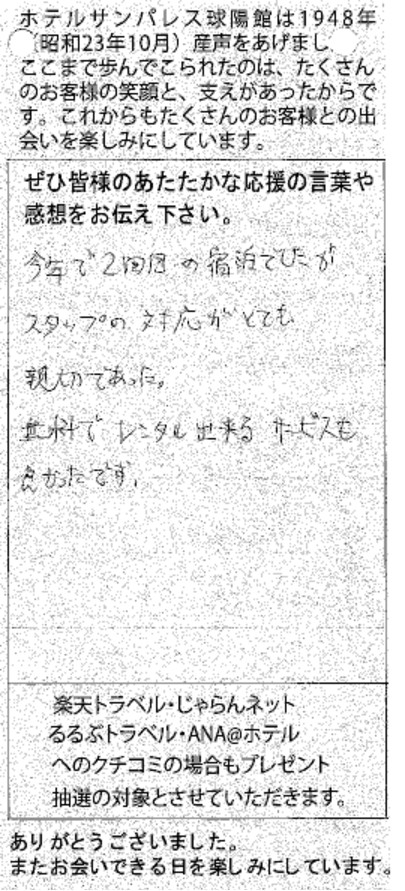 ホテルサンパレス球陽館は1948年
（昭和23年10月）産声をあげまし
ここまで歩んでこられたのは、たくさん
のお客様の笑顔と、支えがあったからで
す。これからもたくさんのお客様との出
会いを楽しみにしています。
ぜひ皆様のあたたかな応援の言葉や
感想をお伝え下さい。
今年で2回目の宿泊でしたが
スタッフの対応がとても
親切であった。
無料でレンタル出来るサービスも
良かったです。
楽天トラベル・じゃらんネット
るるぶトラベル・ANA@ホテル
へのクチコミの場合もプレゼント
抽選の対象とさせていただきます。
ありがとうございました。
またお会いできる日を楽しみにしています。